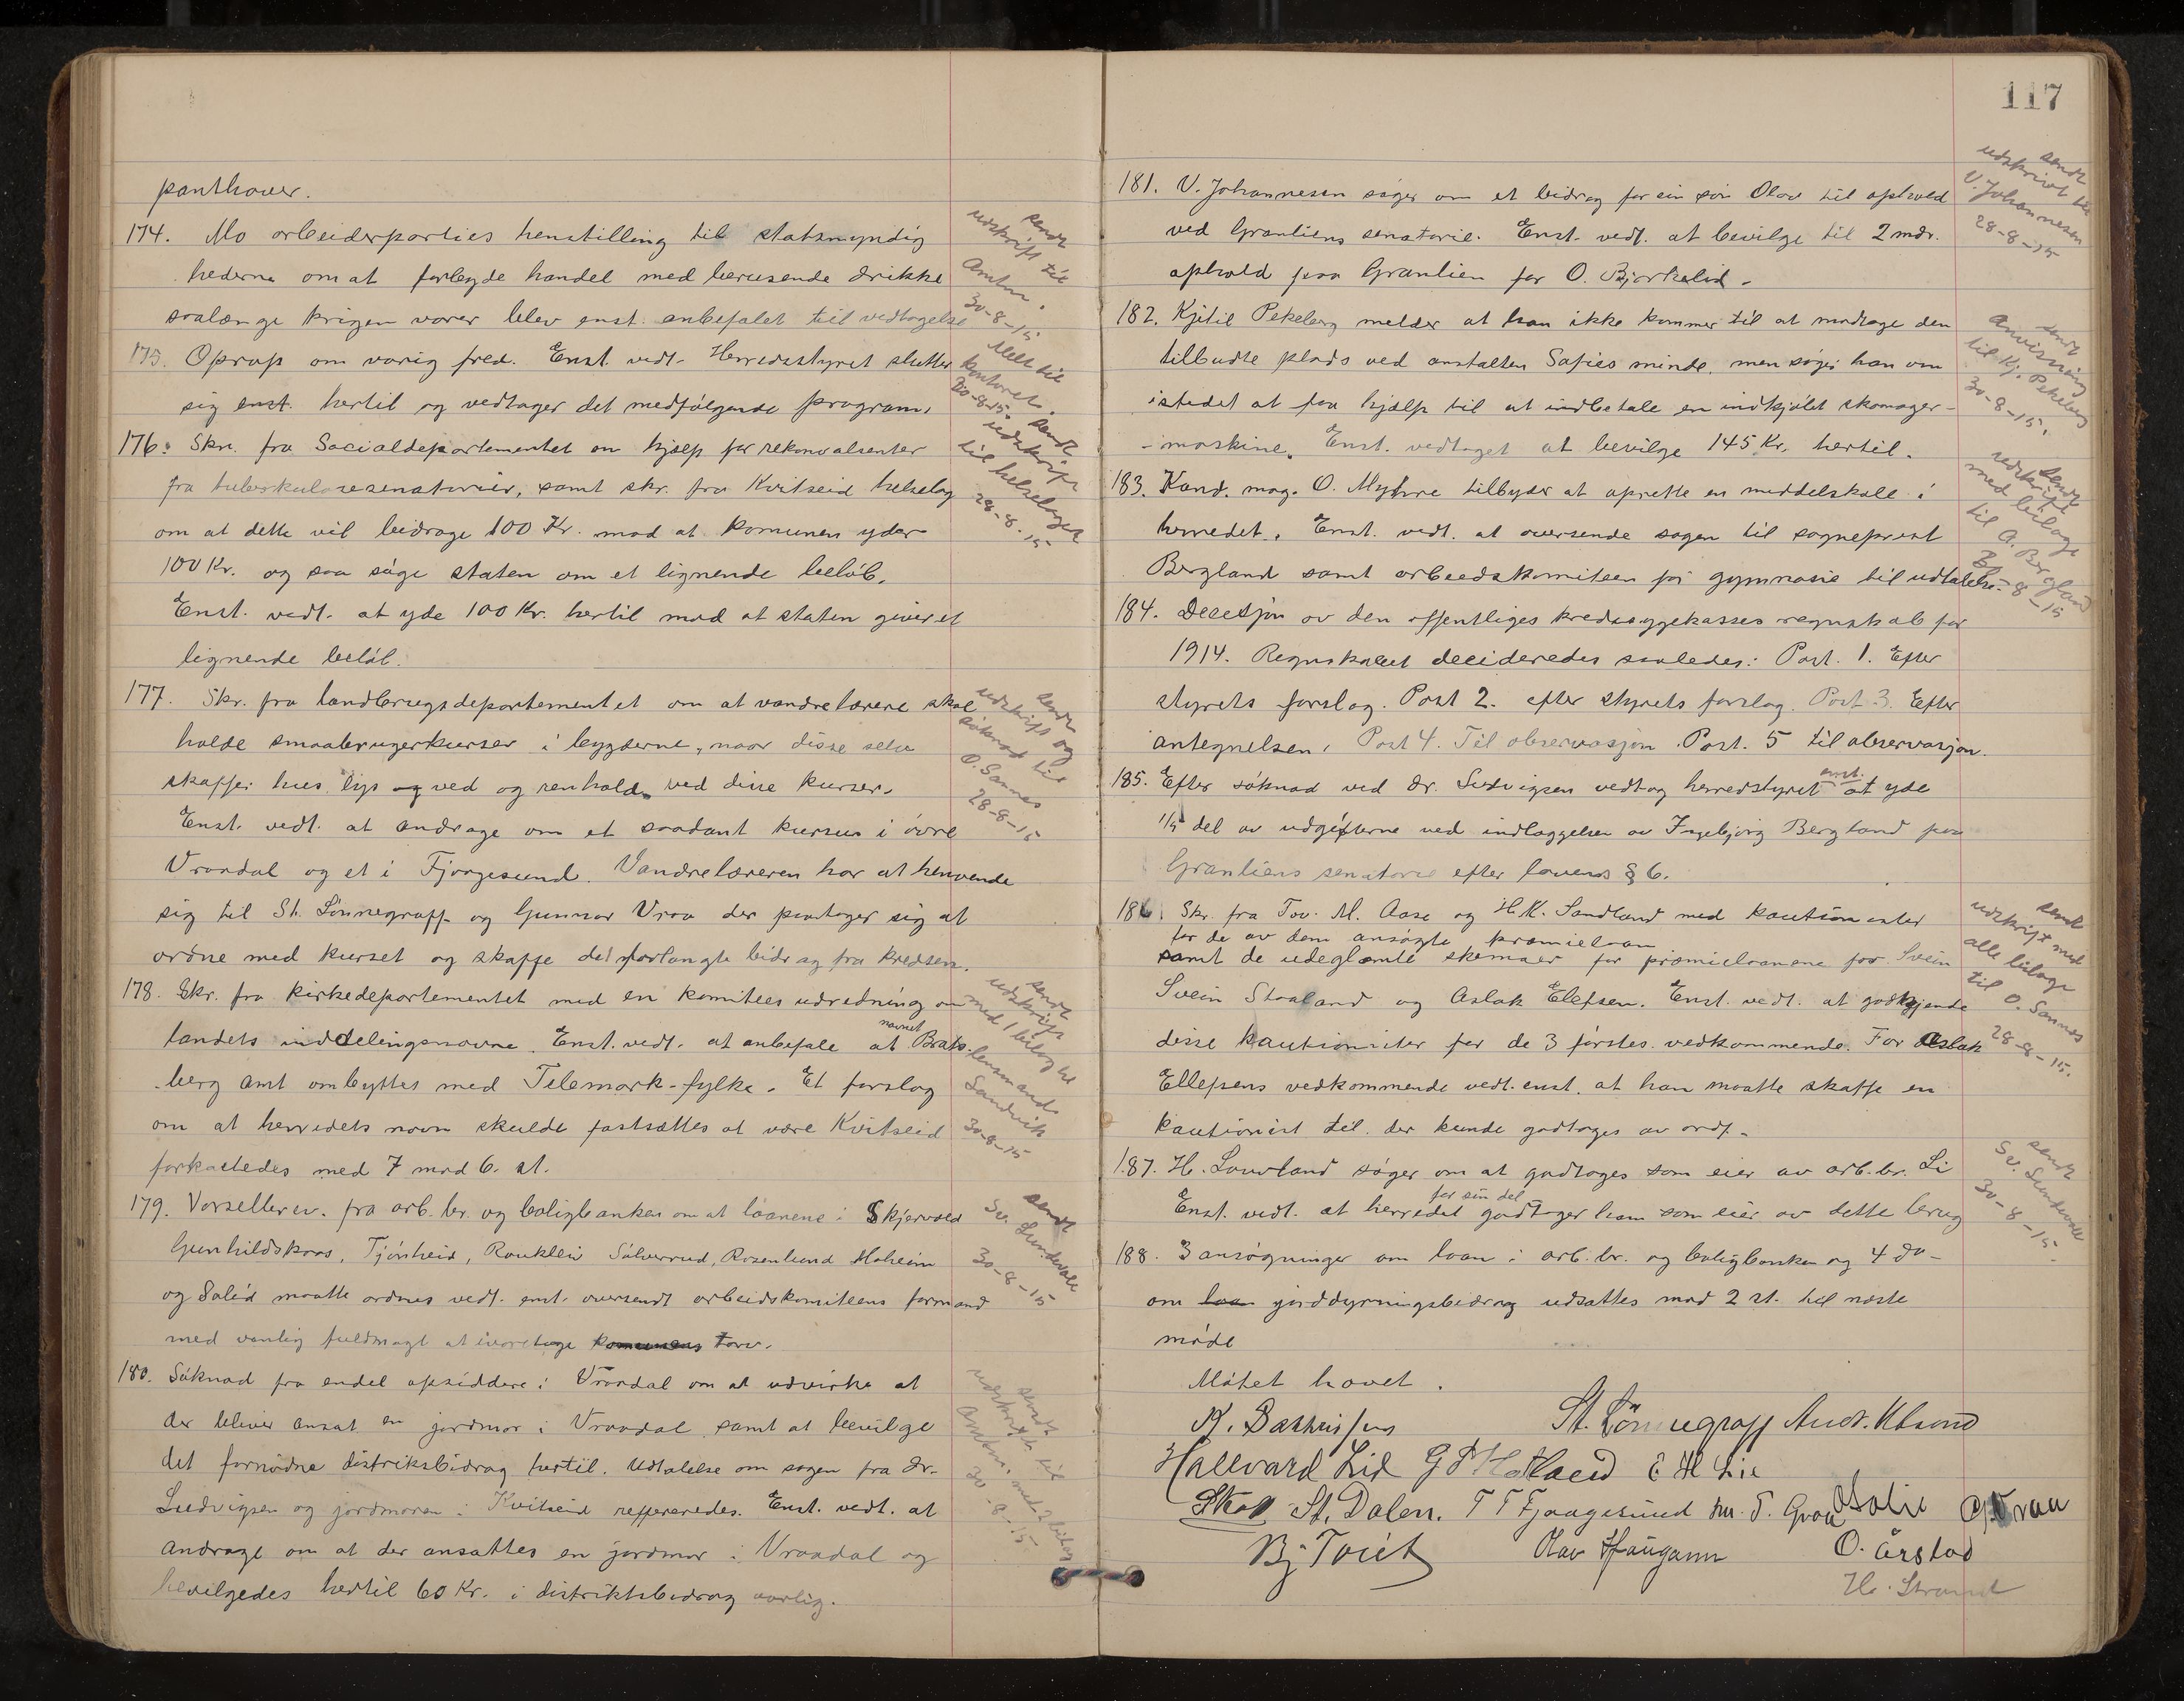 panthaver.
174. Mo arbeiderparties henstilling til statsmyndig
hederne om at forbyde handel med berusende drikke
saalænge krigen varer blev enst. anbefalet til vedtagelse
sendt
udskrift til
Amtm.
30-8-15
175. Oprop om varig fred. Enst. vedt. Herredsstyret slutter
sig enst. hertil og vedtager det medfølgende program.
Meldt til
kontoret.
30-8-15.
176. Skr. fra Socialdepartementet om hjælp for rekonvalsenter
fra tuberkulosesenatorier, samt skr. fra Kvitseid helselag
om at dette vil bidrage 100 Kr. mod at komunen yder
100 Kr. og saa søge staten om et lignende beløb.
Enst. vedt. at yde 100 Kr. hertil mod at staten giver et
lignende beløb.
sendt
udskrift
til helselaget
28-8-15
177. Skr. fra landbrugsdepartementet om at vandrelærere skal
holde smaabrugerkurser i bygderne, naar disse selv
skaffer hus, lys og ved og renhold ved disse kurser.
Enst. vedt. at andrage om et saadant kursus i øvre
Vraadal og et i Fjaagesund. Vandrelæreren har at henvende
sig til St. Lønnegraff og Gunnar Vraa der paatager sig at
ordne med kurset og skaffe det forlangte bidrag fra kredsen.
sendt
udskrift og
søknad til
O. Sannes
28-8-15
178. Skr. fra kirkedepartementet med en komitees udredning om
landets inddelingsnavne. Enst. vedt. at anbefale at navnet Brats-
berg amt ombyttes med Telemark-fylke. Et forslag
om at herredets navn skulde fastsættes at være Kvitseid
forkastedes med 7 mod 6 st.
sendt
udskrift
med 1 bilag til
lensmand
Sandvik
30-8-15
179. Varselbrev. fra arb. br. og boligbanken om at laanene i Skjervold
Gunhildskaas, Tjønheid, Rauklein Sølverrud, Rosenlund Moheim
og Solid maatte ordnes vedt. enst. oversendt arbeidskomiteens formand
med vanlig fuldmagt at ivaretage komunens tarv.
sendt
Sv. Sundvale
30-8-15
180. Søknad fra endel opsiddere i Vraadal om at udvirke at
der bliver ansat en jordmor i Vraadal samt at bevilge
det fornødne distriksbidrag hertil. Udtalelse om sagen fra dr.
Ludvigsen og jordmoren i Kvitseid reffereredes. Enst. vedt. at
andrage om at der ansattes en jordmor i Vraadal og
bevilgedes hertil 60 Kr. i distriktsbidrag aarlig.
sendt
udskrift til
Amtm. med 2 bilag
30-8-15
117
181. V. Johannesen søger om et bidrag for sin søn Olav til ophold
ved Granliens senatorie. Enst. vedt. at bevilge til 2 mdr.
ophold paa Granlien for O. Bjørkelid.
sendt
udskrivt til
V. Johannesen
28-8-15
182. Kjitil Pekeberg melder at han ikke kommer til at modtage den
tilbudte plads ved anstalten Sofies minde, men søger han om
istedet at faa hjælp til at indbetale en indkjøbt skomager-
-maskine. Enst. vedtaget at bevilge 145 Kr. hertil.
sendt
Anvisning
til Kj. Pekeberg
30-8-15.
183. Kand. mag. O. Myhre tilbyder at oprette en middelskole i
herredet. Enst. vedt. at oversende sagen til sogneprest
Bergland samt arbeidskomiteen for gymnasie til udtalelse.
sendt
udskrift
med bilage
til A. Bergland
28-8-15
184. Decisjon av den offentliges kredssygekasses regnskab for
1914. Regnskabet decideredes saaledes: Post. 1. Efter
styrets forslag. Post 2. efter styrets forslag. Post 3. Efter
antegnelsen. Post 4. Til observasjon. Post. 5 til observasjon.
185. Efter søknad ved dr. Ludvigsen vedtog herredstyret enst. at yde
1/5 del av udgifterne ved indlæggelsen av Ingebjørg Bergland paa
Granliens senatorie efter lovens § 6.
186. Skr. fra Tov. M. Aase og H. K. Sandland med kautionister
for de av dem ansøgte præmielaan
samt de udeglømte skemaer for præmielaanene for Svein
Svein Staaland og Aslak Elefsen. Enst. vedt. at godkjende
disse kautionister for de 3 førstes vedkommende. For Aslak
Ellefsens vedkommende vedt. enst. at han maatte skaffe en
kautionist til. der kunde godtages av ordf.
sendt
udskrift med
alle bilage
til O. Sannes
28-8-15.
187. H. Lauvland søger om at godtages som eier av arb. br. Li
Enst. vedt. at herredet for sin del godtager ham som eier av dette brug
sendt
Sv. Sundvale
30-8-15
188. 3 ansøgninger om laan i arb. br. og boligbanken og 4 do-
om laan jorddyrningsbidrag udsattes mod 2 st. til næste
møde
Møtet hævet.
St. Lönnegraff
Hallvard Lid
St. Dalen. T T Fjaagesund
G. Vraa
O. Årstad
H. Strand